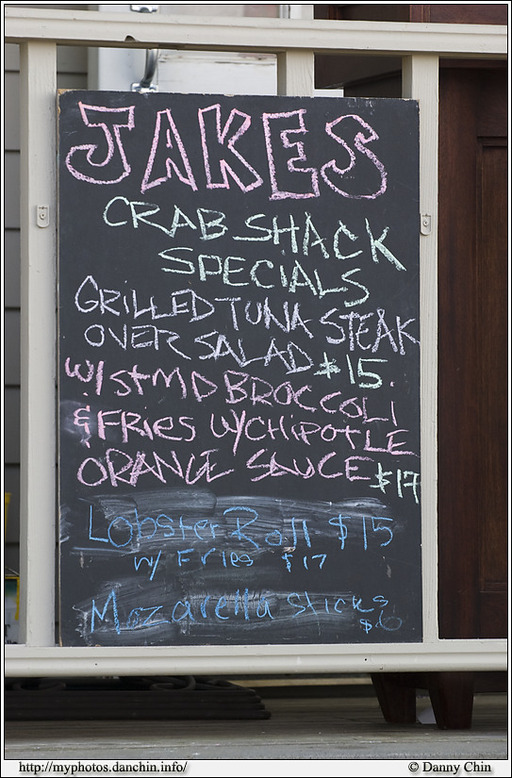 JAKES
CRAB SHACK
SPECIALS
GRILLED TUNA STEAK
OVER SALAD $15.
W/ STMD BROCCOLI
& FRIES W/ CHIPOTLE
ORANGE SAUCE $17
Lobster Roll $15
w/ Fries $17
Mozarella Sticks
$6
http://myphotos.danchin.info/
© Danny Chin